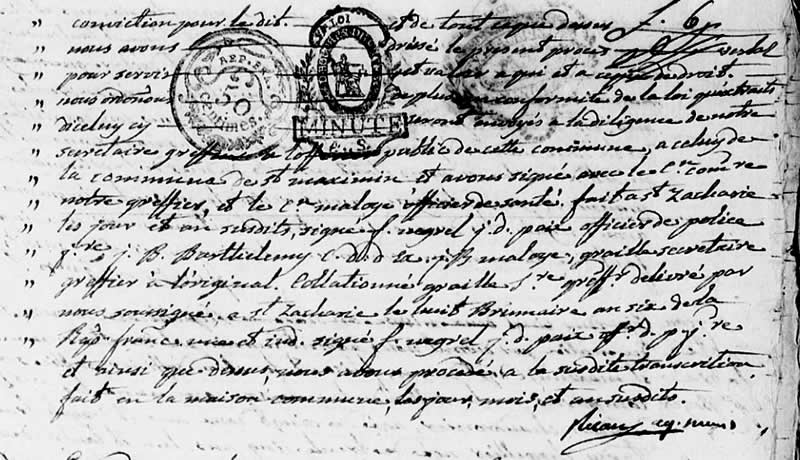 " conviction pour le dit. et de tout ce que dessus
" nous avons dressé le present proces verbal
" pour servir et valoir a qui et a ce que de droit.
" nous ordonnons de plus, a conformité de la loi qu'extraits
" d'iceluy cy seront envoyés a la diligence de notre
" secretaire greffier a l'officier public de cette commune, a celuy de
" la commune de st maximin et avons signé avec le Cn comre
" notre greffier, et le Cn maloye officier de santé. fait a st Zacharie
" les jour et an susdits, signé f. negrel j. d. paix officier de police
" jre, j. B. Barthelemy C. d. d. ex. j B maloye, graille secretaire
" greffier à l'original. Collationné graille sre greffr. delivré par
" nous soussigné, a st Zacharie le huit Brumaire an six de la
" Rep. francc. une et ind. signé f. negrel j. d. paix offr. d. p. jre
et ainsi que dessus, nous avons procedé, a la susdite transcription
fait en la maison commune, les jour, mois, et an susdits.
REP. FRA.
50
Centimes.
LA LOI
MINUTE